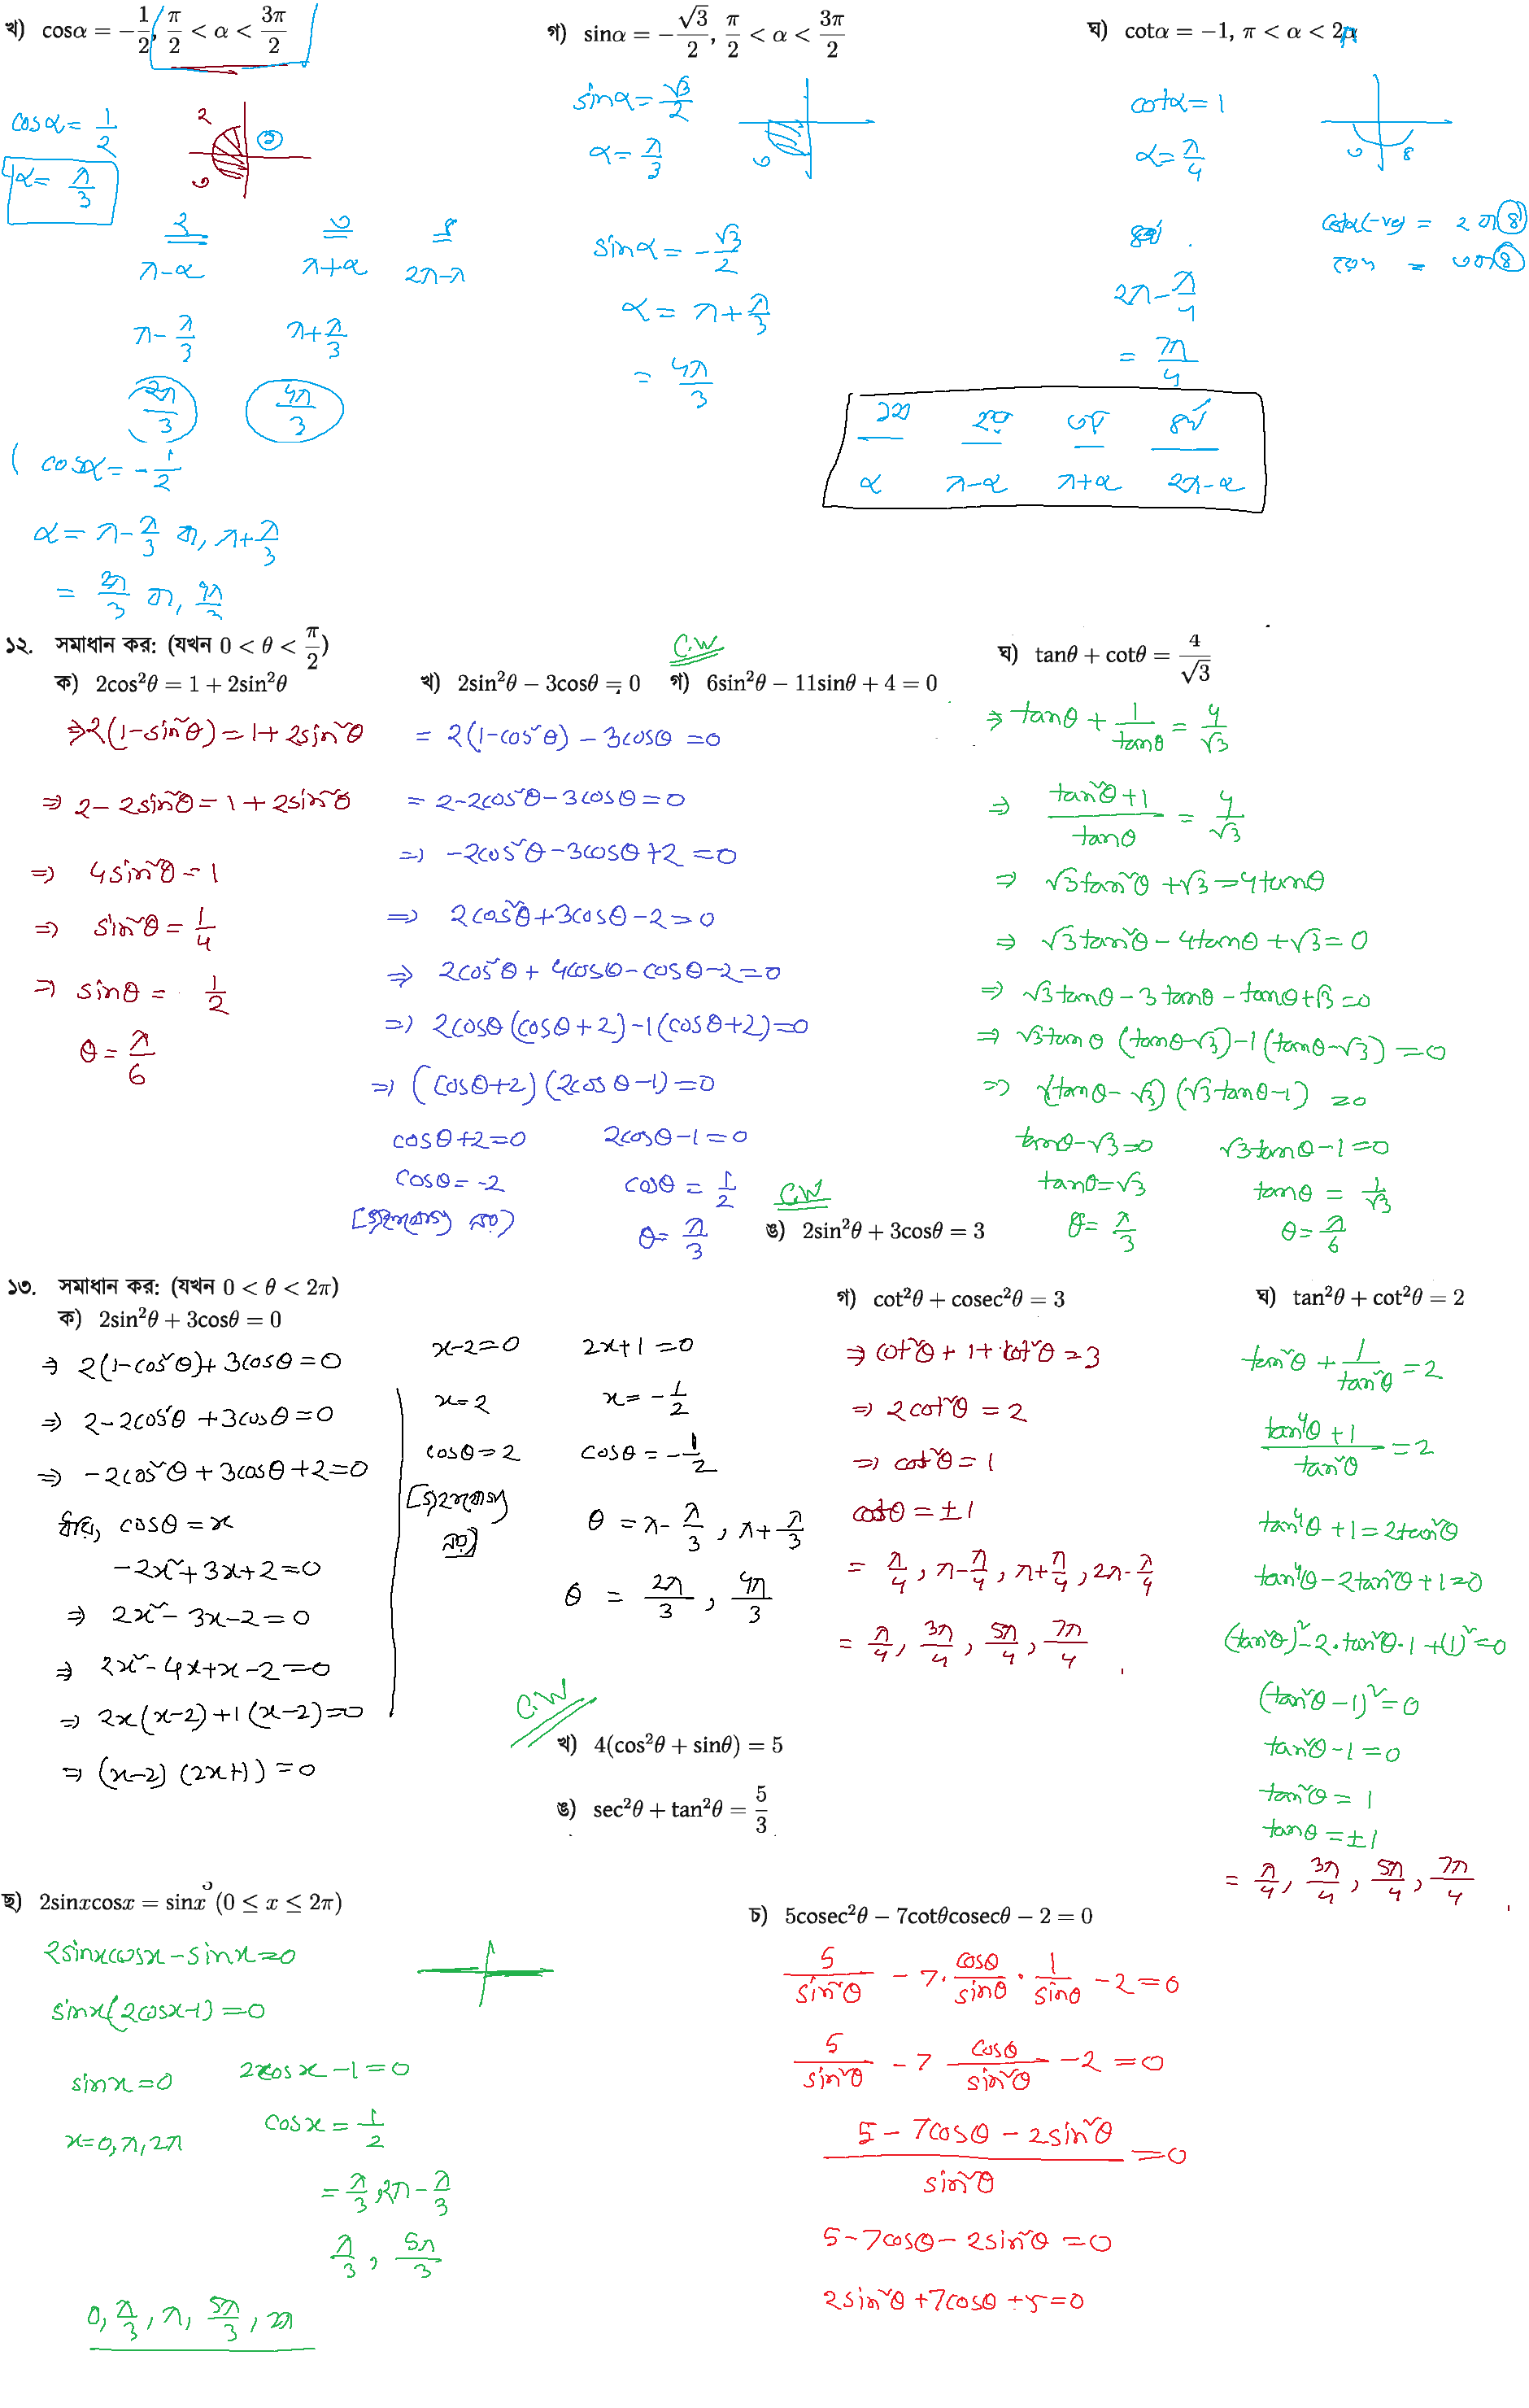 খ) cosα = -1/2, π/2 < α < 3π/2
cosα = 1/2
α = π/3
২
৩
২ ৩ ৪
π-α π+α 2π-π
π-π/3 π+π/3
2π/3 4π/3
cosα = -1/2
α = π-π/3 বা, π+π/3
= 2π/3 বা, 4π/3
গ) sinα = -√3/2, π/2 < α < 3π/2
sinα = √3/2
α = π/3
৩
sinα = -√3/2
α = π+π/3
= 4π/3
ঘ) cotα = -1, π < α < 2π
cotα = 1
α = π/4
৩ ৪
৪র্থ
2π-π/4
= 7π/4
১ম ২য় ৩য় ৪র্থ
α π-α π+α 2π-α
১২. সমাধান কর: (যখন 0 < θ < π/2)
ক) 2cos²θ = 1 + 2sin²θ
⇒ 2(1-sin²θ) = 1+2sin²θ
⇒ 2-2sin²θ = 1+2sin²θ
⇒ 4sin²θ = 1
⇒ sin²θ = 1/4
⇒ sinθ = 1/2
θ = π/6
খ) 2sin²θ − 3cosθ = 0
= 2(1-cos²θ) - 3cosθ = 0
= 2-2cos²θ-3cosθ = 0
⇒ -2cos²θ-3cosθ+2 = 0
⇒ 2cos²θ+3cosθ-2 = 0
⇒ 2cos²θ+4cosθ-cosθ-2 = 0
⇒ 2cosθ(cosθ+2)-1(cosθ+2) = 0
⇒ (cosθ+2)(2cosθ-1) = 0
cosθ+2 = 0 2cosθ-1 = 0
cosθ = -2 cosθ = 1/2
[গ্রহণযোগ্য নয়] θ = π/3
C.W
গ) 6sin²θ − 11sinθ + 4 = 0
ঘ) tanθ + cotθ = 4/√3
⇒ tanθ + 1/tanθ = 4/√3
⇒ (tan²θ+1)/tanθ = 4/√3
⇒ √3tan²θ+√3 = 4tanθ
⇒ √3tan²θ-4tanθ+√3 = 0
⇒ √3tanθ-3tanθ-tanθ+√3 = 0
⇒ √3tanθ(tanθ-√3)-1(tanθ-√3) = 0
⇒ (tanθ-√3)(√3tanθ-1) = 0
tanθ-√3 = 0 √3tanθ-1 = 0
tanθ = √3 tanθ = 1/√3
θ = π/3 θ = π/6
C.W
ঙ) 2sin²θ + 3cosθ = 3
১৩. সমাধান কর: (যখন 0 < θ < 2π)
ক) 2sin²θ + 3cosθ = 0
⇒ 2(1-cos²θ)+3cosθ = 0
⇒ 2-2cos²θ+3cosθ = 0
⇒ -2cos²θ+3cosθ+2 = 0
ধরি, cosθ = x
-2x²+3x+2 = 0
⇒ 2x²-3x-2 = 0
⇒ 2x²-4x+x-2 = 0
⇒ 2x(x-2)+1(x-2) = 0
⇒ (x-2)(2x+1) = 0
x-2 = 0 2x+1 = 0
x = 2 x = -1/2
cosθ = 2 cosθ = -1/2
[গ্রহণযোগ্য নয়]
θ = π-π/3, π+π/3
θ = 2π/3, 4π/3
C.W
খ) 4(cos²θ + sinθ) = 5
ঙ) sec²θ + tan²θ = 5/3
গ) cot²θ + cosec²θ = 3
⇒ cot²θ+1+cot²θ = 3
⇒ 2cot²θ = 2
⇒ cot²θ = 1
cotθ = ±1
= π/4, π-π/4, π+π/4, 2π-π/4
= π/4, 3π/4, 5π/4, 7π/4
ঘ) tan²θ + cot²θ = 2
tan²θ + 1/tan²θ = 2
(tan⁴θ+1)/tan²θ = 2
tan⁴θ+1 = 2tan²θ
tan⁴θ-2tan²θ+1 = 0
(tan²θ)²-2.tan²θ.1+(1)² = 0
(tan²θ-1)² = 0
tan²θ-1 = 0
tan²θ = 1
tanθ = ±1
= π/4, 3π/4, 5π/4, 7π/4
ছ) 2sinxcosx = sinx (0 ≤ x ≤ 2π)
2sinxcosx-sinx = 0
sinx(2cosx-1) = 0
sinx = 0 2cosx-1 = 0
x = 0, π, 2π cosx = 1/2
= π/3, 2π-π/3
π/3, 5π/3
0, π/3, π, 5π/3, 2π
চ) 5cosec²θ − 7cotθcosecθ − 2 = 0
5/sin²θ - 7.cosθ/sinθ.1/sinθ - 2 = 0
5/sin²θ - 7 cosθ/sin²θ - 2 = 0
(5-7cosθ-2sin²θ)/sin²θ = 0
5-7cosθ-2sin²θ = 0
2sin²θ+7cosθ+5 = 0